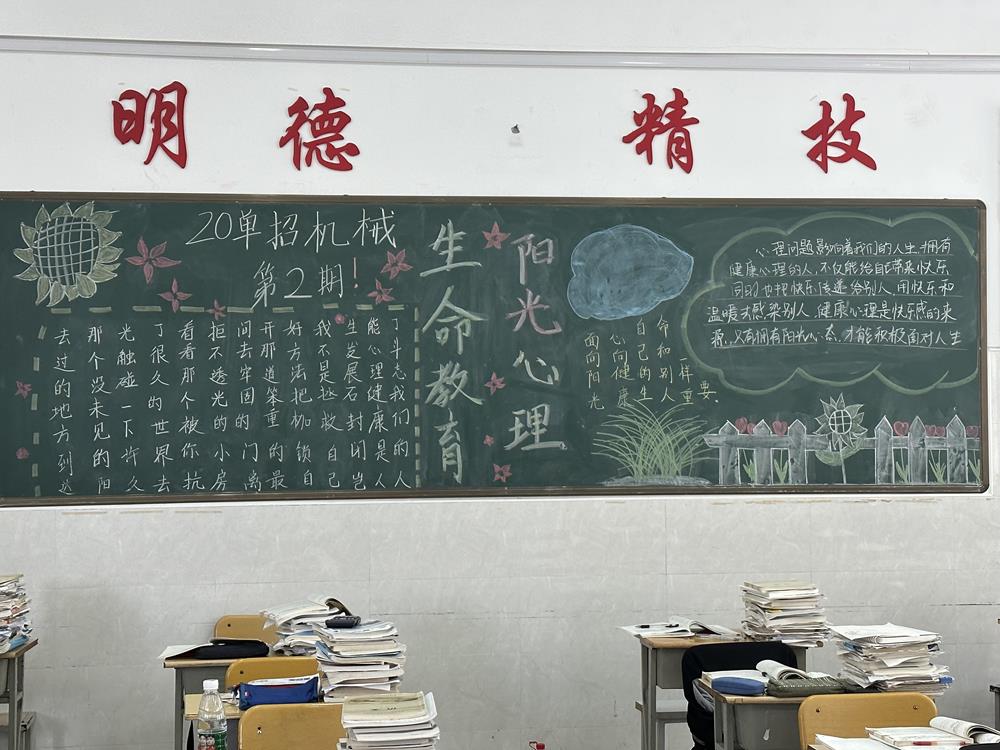 明德 精技
20单招机械
第2期!
去过的地方到达
那个没未见的阳
光触碰一下许久
了很久的世界去
看看那个被你抗
拒不透光的小房
问去牢固的门离
开那道笨重的最
好方法把枷锁
我不是拯救自己
生发展石封闭岂
能心理健康是人
了斗志我们的人
生命教育
阳光心理
面向阳光
心向健康
自己的生
命和别人
一样重
要
心理问题影响着我们的人生.拥有
健康心理的人,不仅能给自己带来快乐,
同时也把快乐传递给别人,用快乐和
温暖去感染别人,健康心理是快乐感的来
源,只有拥有阳光心态,才能积极面对人生